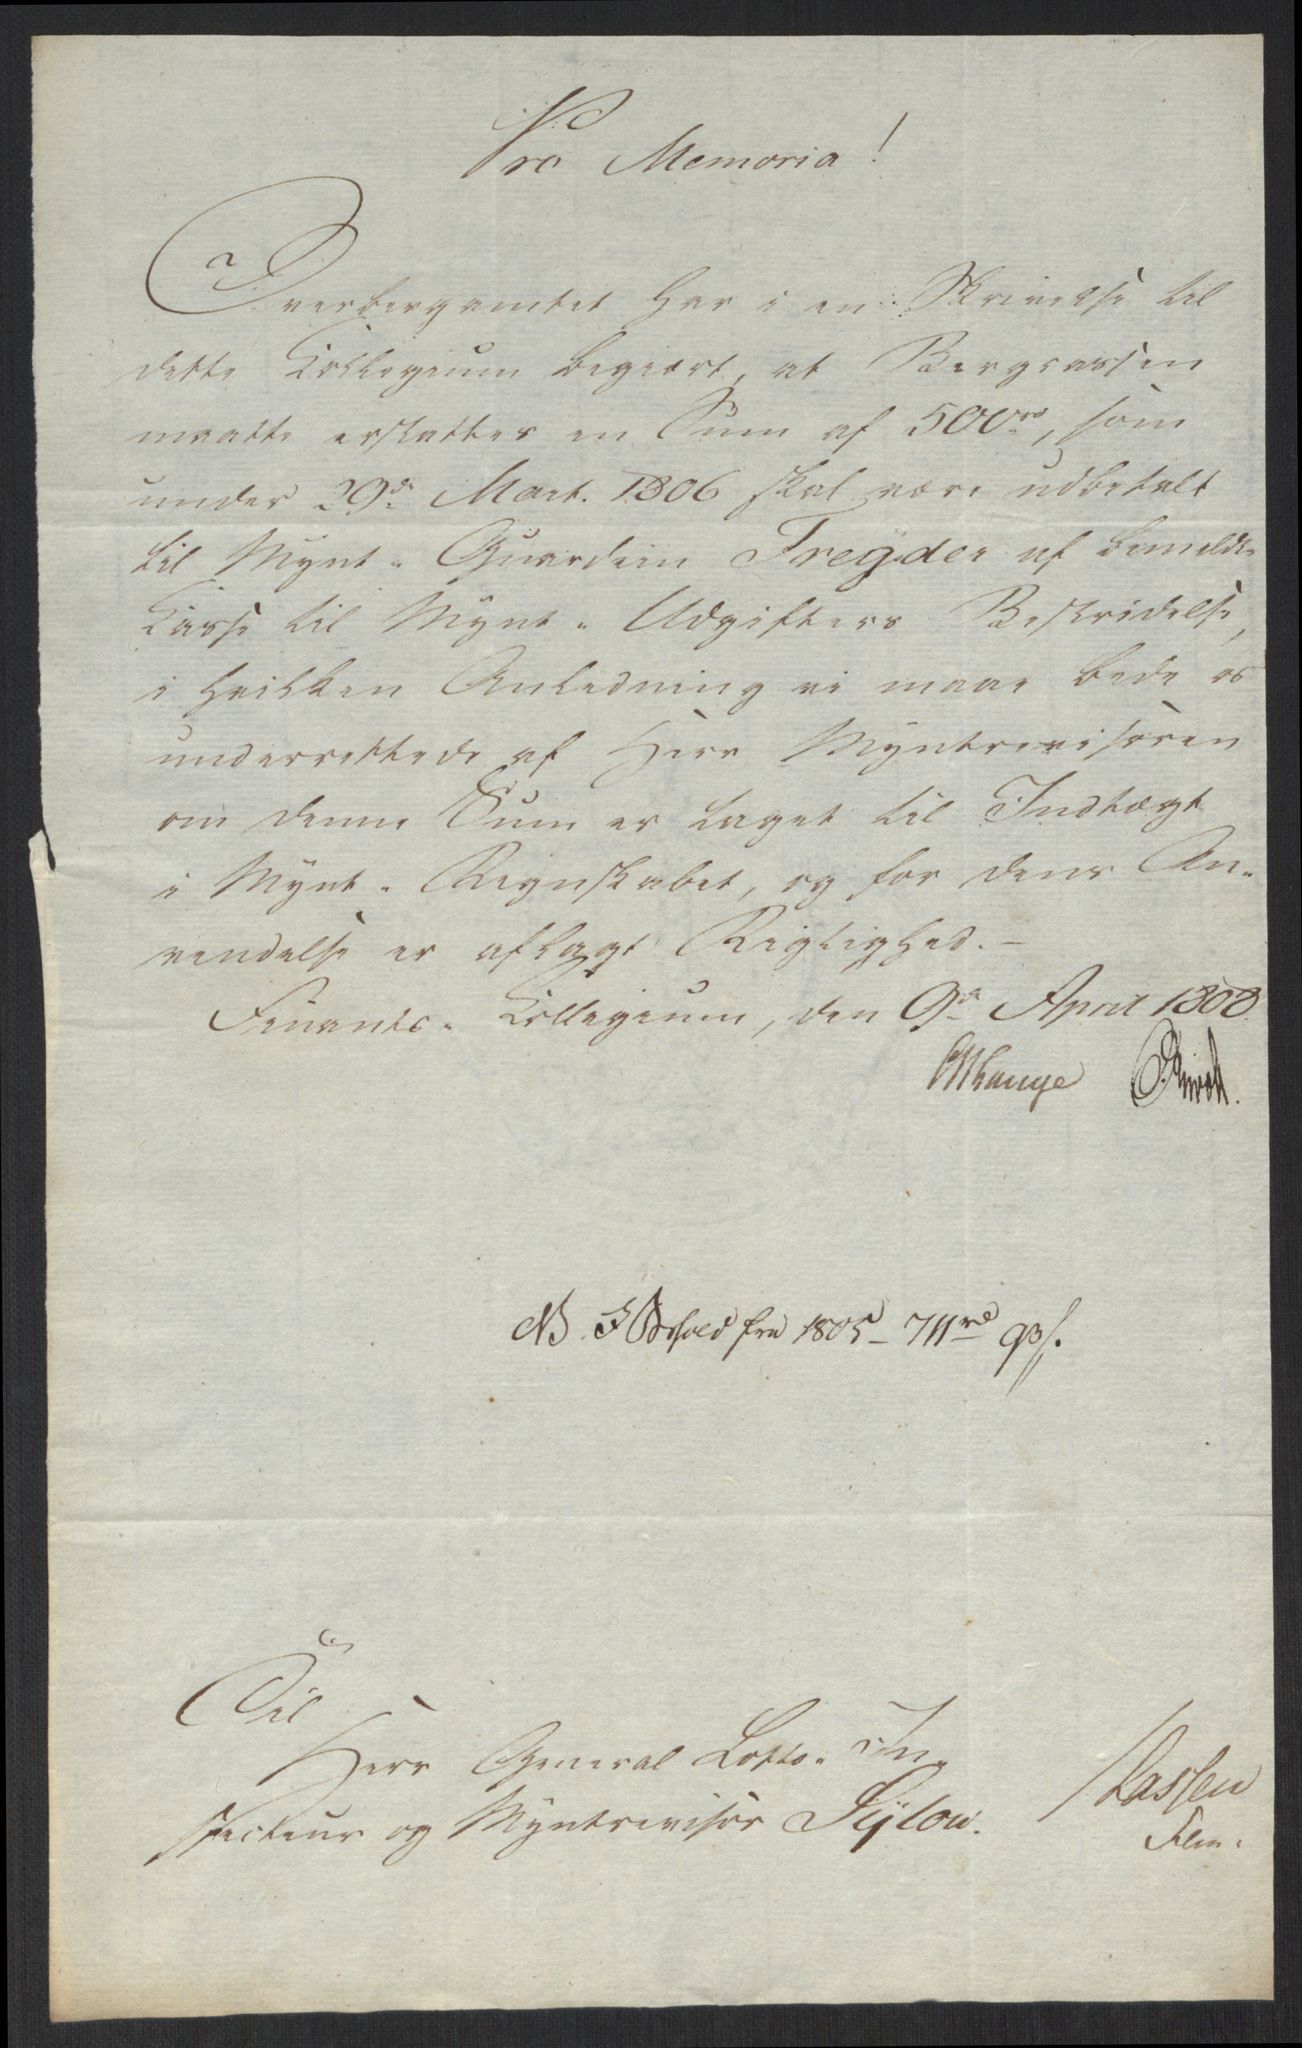 Pro Memoria!
Overbergamtet har i en Skrivelse til
dette Collegium begiert, at Bergcassen
maatte erstattes en Sum af 500 rd, som
under 29de Mart. 1806 skal være udbetalt
til Mynt-Guardein Fregder af bemeldte
Casse til Mynt-Udgifters Bestridelse,
i hvilken Anledning vi maae bede os
underrettede af Herr Myntrevisoren
om denne Sum er taget til Indtægt
i Mynt-Regnskabet, og for dens An-
vendelse er aflagt Rigtighed. -
Finants-Collegium, den 9de April 1808.
NB. I Behold fra 1805 - 711 rd 93 s.
Til
Herr General Lotto-In-
specteur og Myntrevisor Sylow.